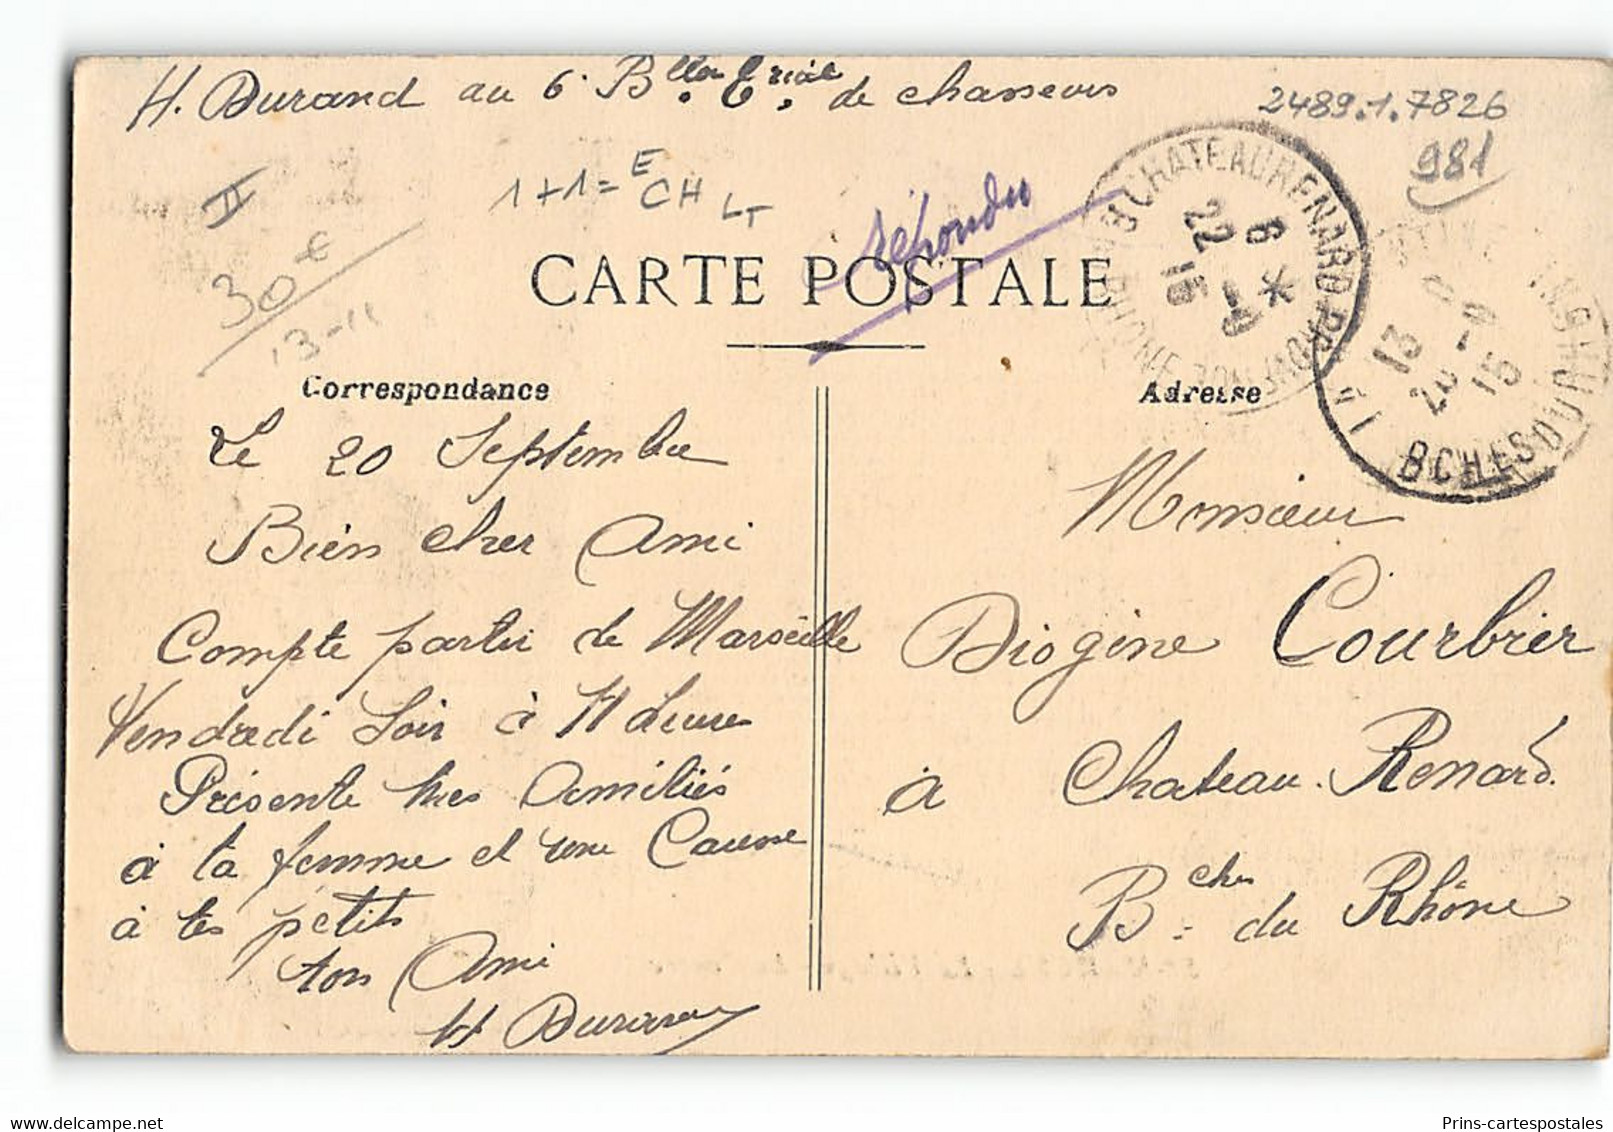 H. Durand au 6. Bllon Erial de chasseurs
2489.1.7826
981
II
1+1= E CH LT
30€
13-11
répondu
CARTE POSTALE
CHATEAURENARD-PR
6 *
22 -9
15
BOUCHES-DU-RHONE
13
20 -9
15
BCHES DU
Correspondance
Adresse
Le 20 Septembre
Bien cher Ami
Compte partir de Marseille
Vendredi Soir à 11 heure
Présente mes Amitiés
à ta femme et une Caresse
à tes petits
ton Ami
H Durand
Monsieur
Diogène Courbier
à Chateau-Renard.
Bches du Rhône
delcampe.net
Prins-cartespostales